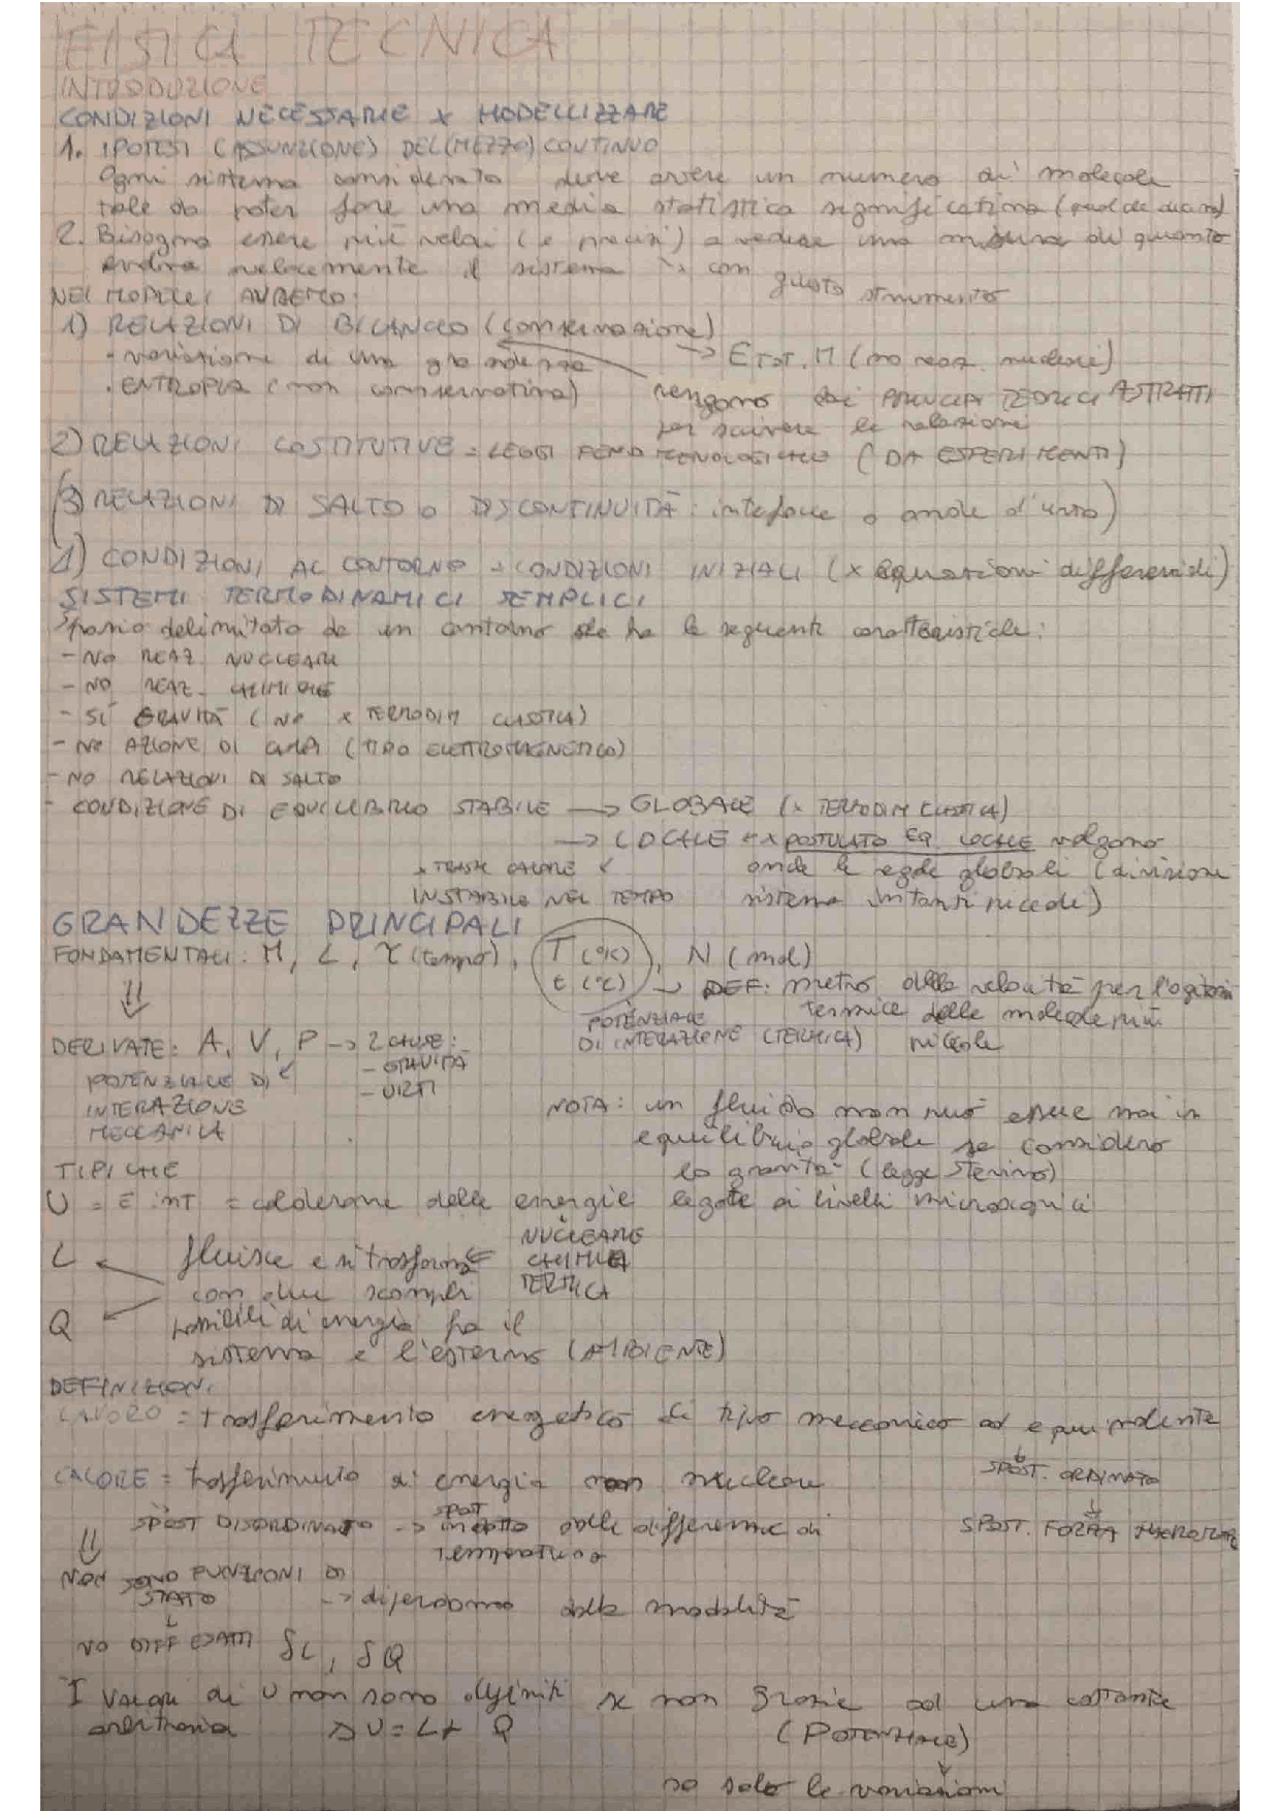 FISICA TECNICA
INTRODUZIONE
CONDIZIONI NECESSARIE x MODELLIZZARE
1. IPOTESI (ASSUNZIONE) DEL (MEZZO) CONTINUO
Ogni sistema considerato deve avere un numero di molecole
tale da poter fare una media statistica significativa
2. Bisogna essere più veloci (e precisi) a vedere una misura di quanto
evolva velocemente il sistema con questo strumento
NEI MODELLI AVREMO:
1) RELAZIONI DI BILANCIO (conservazione)
• variazione di una grandezza → E TOT, M (no reaz. nucleari)
• ENTROPIA (non conservativa) vengono dai PRINCIPI TEORICI ASTRATTI
per scrivere le relazioni
2) RELAZIONI COSTITUTIVE = LEGGI FENOMENOLOGICHE (DA ESPERIMENTI)
(3) RELAZIONI DI SALTO o DISCONTINUITÀ: interfacce o onde d'urto)
4) CONDIZIONI AL CONTORNO + CONDIZIONI INIZIALI (x equazioni differenziali)
SISTEMI TERMODINAMICI SEMPLICI
Spazio delimitato da un contorno che ha le seguenti caratteristiche:
- NO REAZ. NUCLEARI
- NO REAZ. CHIMICHE
- SÌ GRAVITÀ (NO x TERMODIM CLASSICA)
- NO AZIONE DI CAMPI (TIPO ELETTROMAGNETICO)
- NO RELAZIONI DI SALTO
- CONDIZIONE DI EQUILIBRIO STABILE → GLOBALE (x TERMODIM CLASSICA)
→ LOCALE x POSTULATO EQ. LOCALE valgono
x TRASM CALORE anche le regole globali (divisione
INSTABILE NEL TEMPO sistema in tanti piccoli)
GRANDEZZE PRINCIPALI
FONDAMENTALI: M, L, τ (tempo), T (°K), N (mol)
t (°C) → DEF: metro della velocità per l'agitazione
POTENZIALE termica delle molecole più
DERIVATE: A, V, P → 2 CAUSE: DI INTERAZIONE (TERMICA) piccole
- GRAVITÀ
POTENZIALE DI
- URTI
INTERAZIONE NOTA: un fluido non può essere mai in
MECCANICA equilibrio globale se considero
TIPICHE la gravità (legge Stevino)
U = E INT = calderone delle energie legate ai livelli microscopici
NUCLEARE
L fluisce e si trasforma CHIMICA
con due scambi TERMICA
Q possibili di energia fra il
sistema e l'esterno (AMBIENTE)
DEFINIZIONI
LAVORO = trasferimento energetico di tipo meccanico od equivalente
SPOST. ORDINATO
CALORE = trasferimento di energia non nucleare
SPOST DISORDINATO → SPOST indotto dalle differenze di SPOST. FORZA
temperatura
NON SONO FUNZIONI DI
STATO → dipendono dalle modalità
NO DIFF ESATTI δL, δQ
I valori di U non sono definiti se non grazie ad una costante
arbitraria ΔU = L + Q (POTENZIALE)
so solo le variazioni